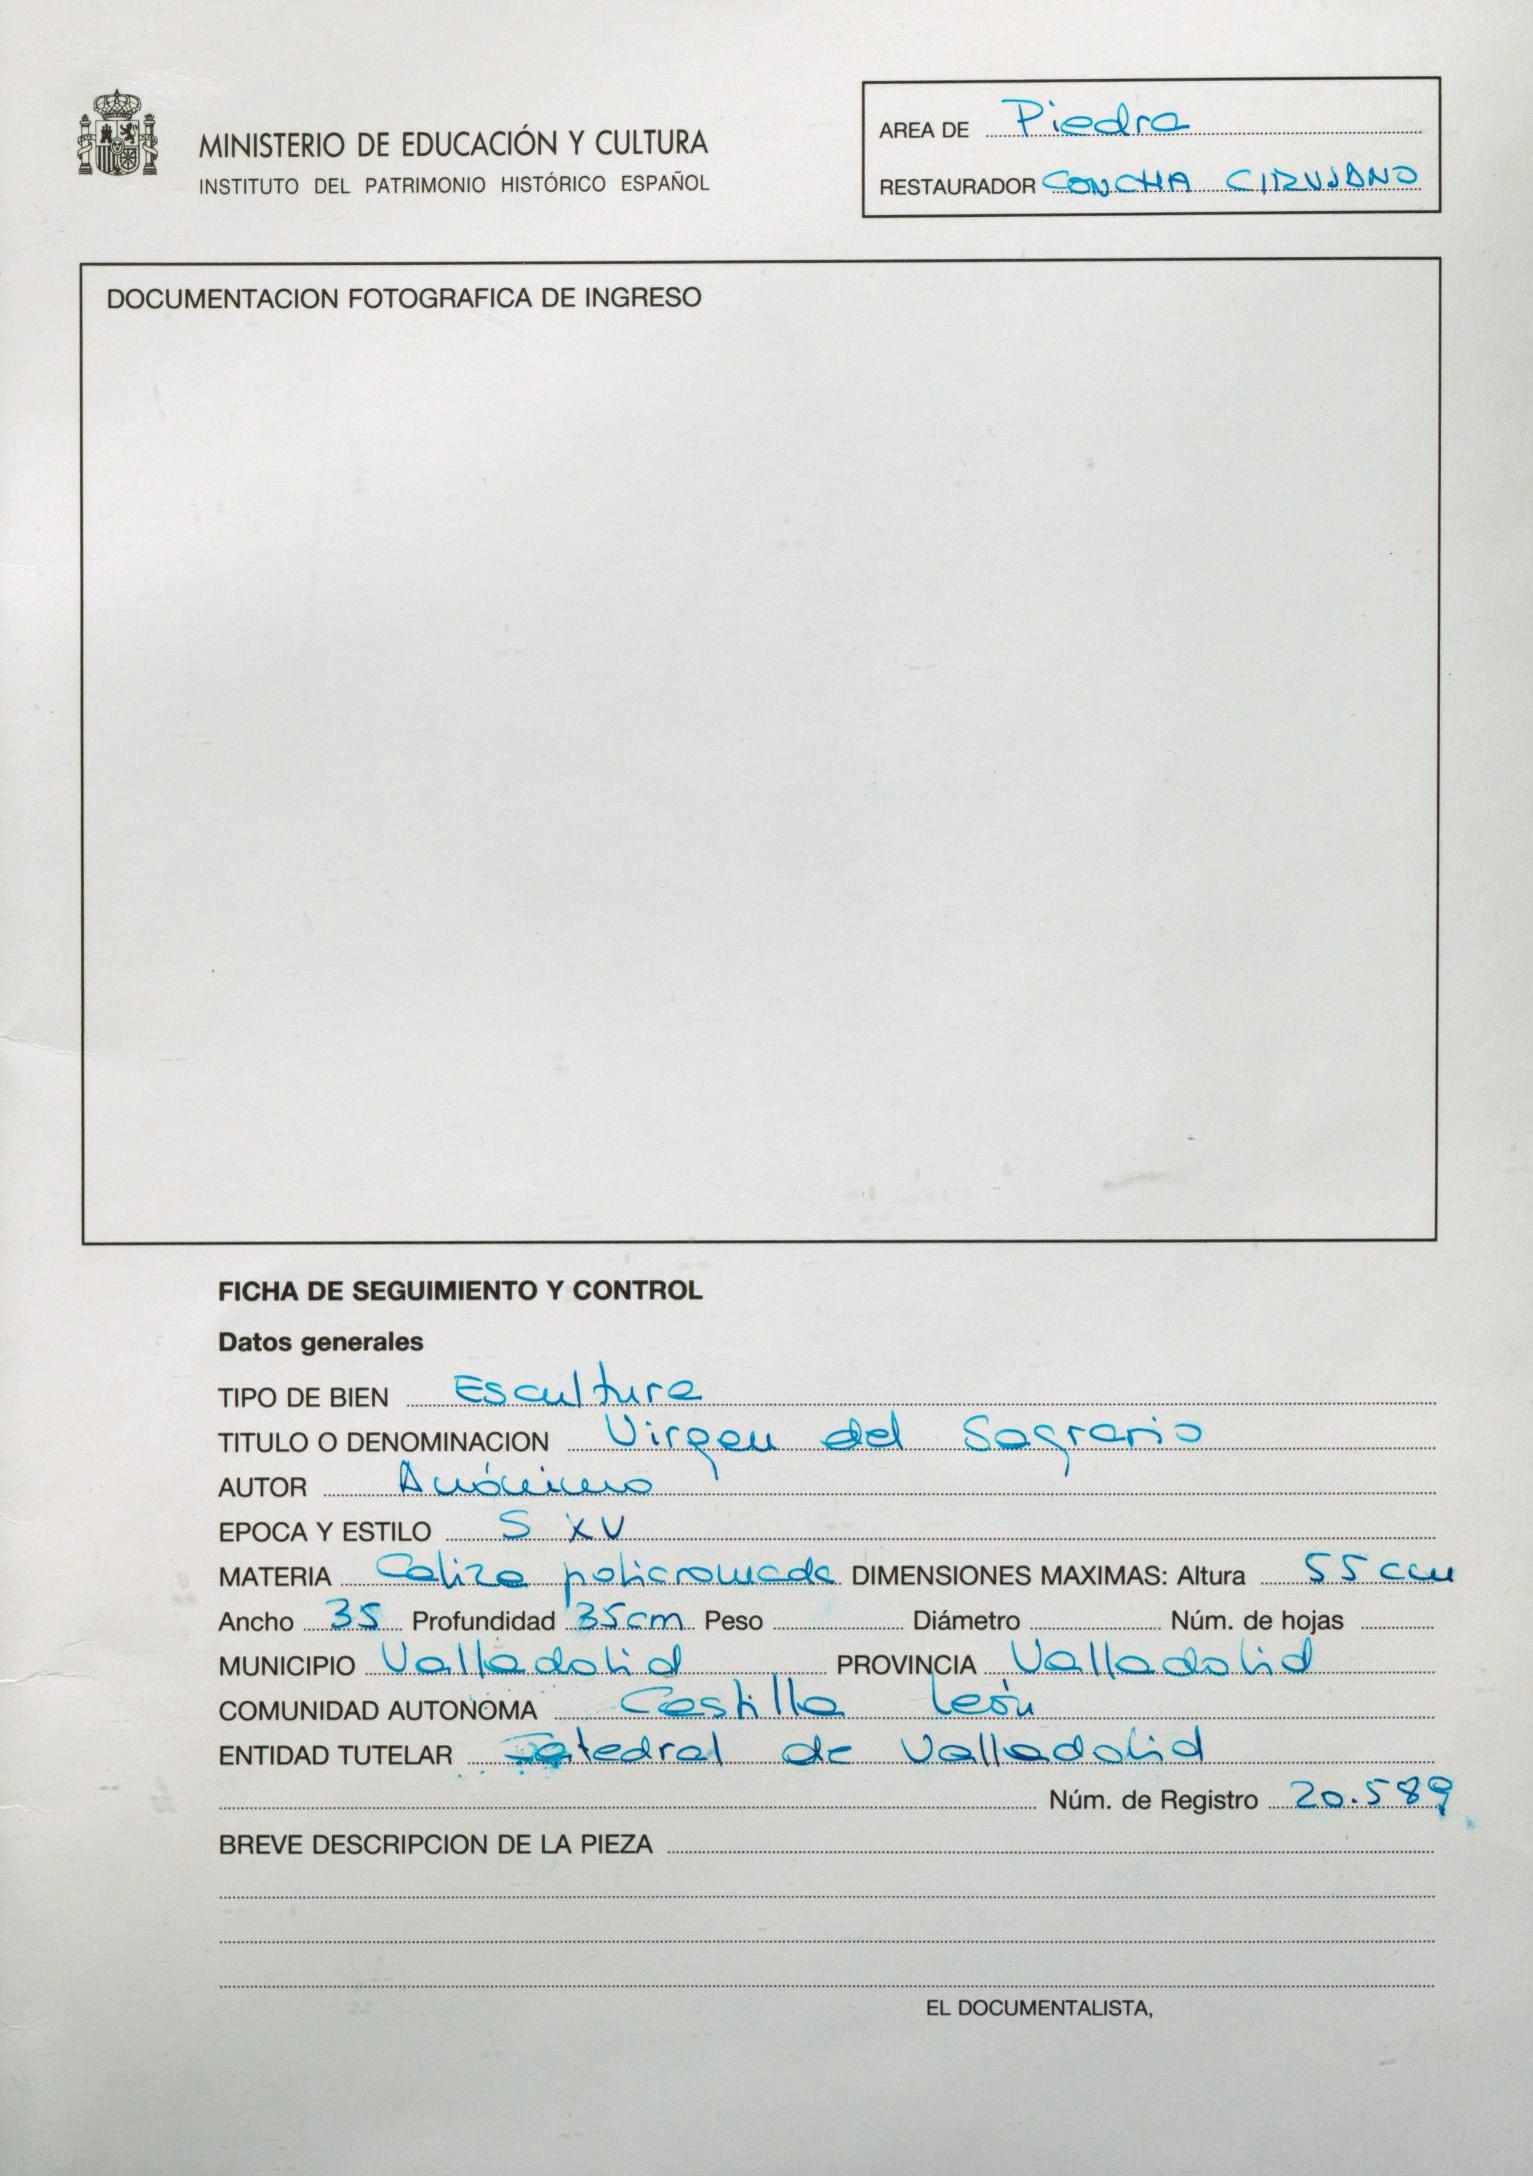 MINISTERIO DE EDUCACIÓN Y CULTURA
INSTITUTO DEL PATRIMONIO HISTÓRICO ESPAÑOL
AREA DE Piedra
RESTAURADOR CONCHA CIRUJANO
DOCUMENTACION FOTOGRAFICA DE INGRESO
FICHA DE SEGUIMIENTO Y CONTROL
Datos generales
TIPO DE BIEN Escultura
TITULO O DENOMINACION Virgen del Sagrario
AUTOR Anónimo
EPOCA Y ESTILO S XV
MATERIA Caliza policromada DIMENSIONES MAXIMAS: Altura 55 cm
Ancho 35 Profundidad 35cm Peso Diámetro Núm. de hojas
MUNICIPIO Valladolid PROVINCIA Valladolid
COMUNIDAD AUTONOMA Castilla León
ENTIDAD TUTELAR Catedral de Valladolid
Núm. de Registro 20.589
BREVE DESCRIPCION DE LA PIEZA
EL DOCUMENTALISTA,